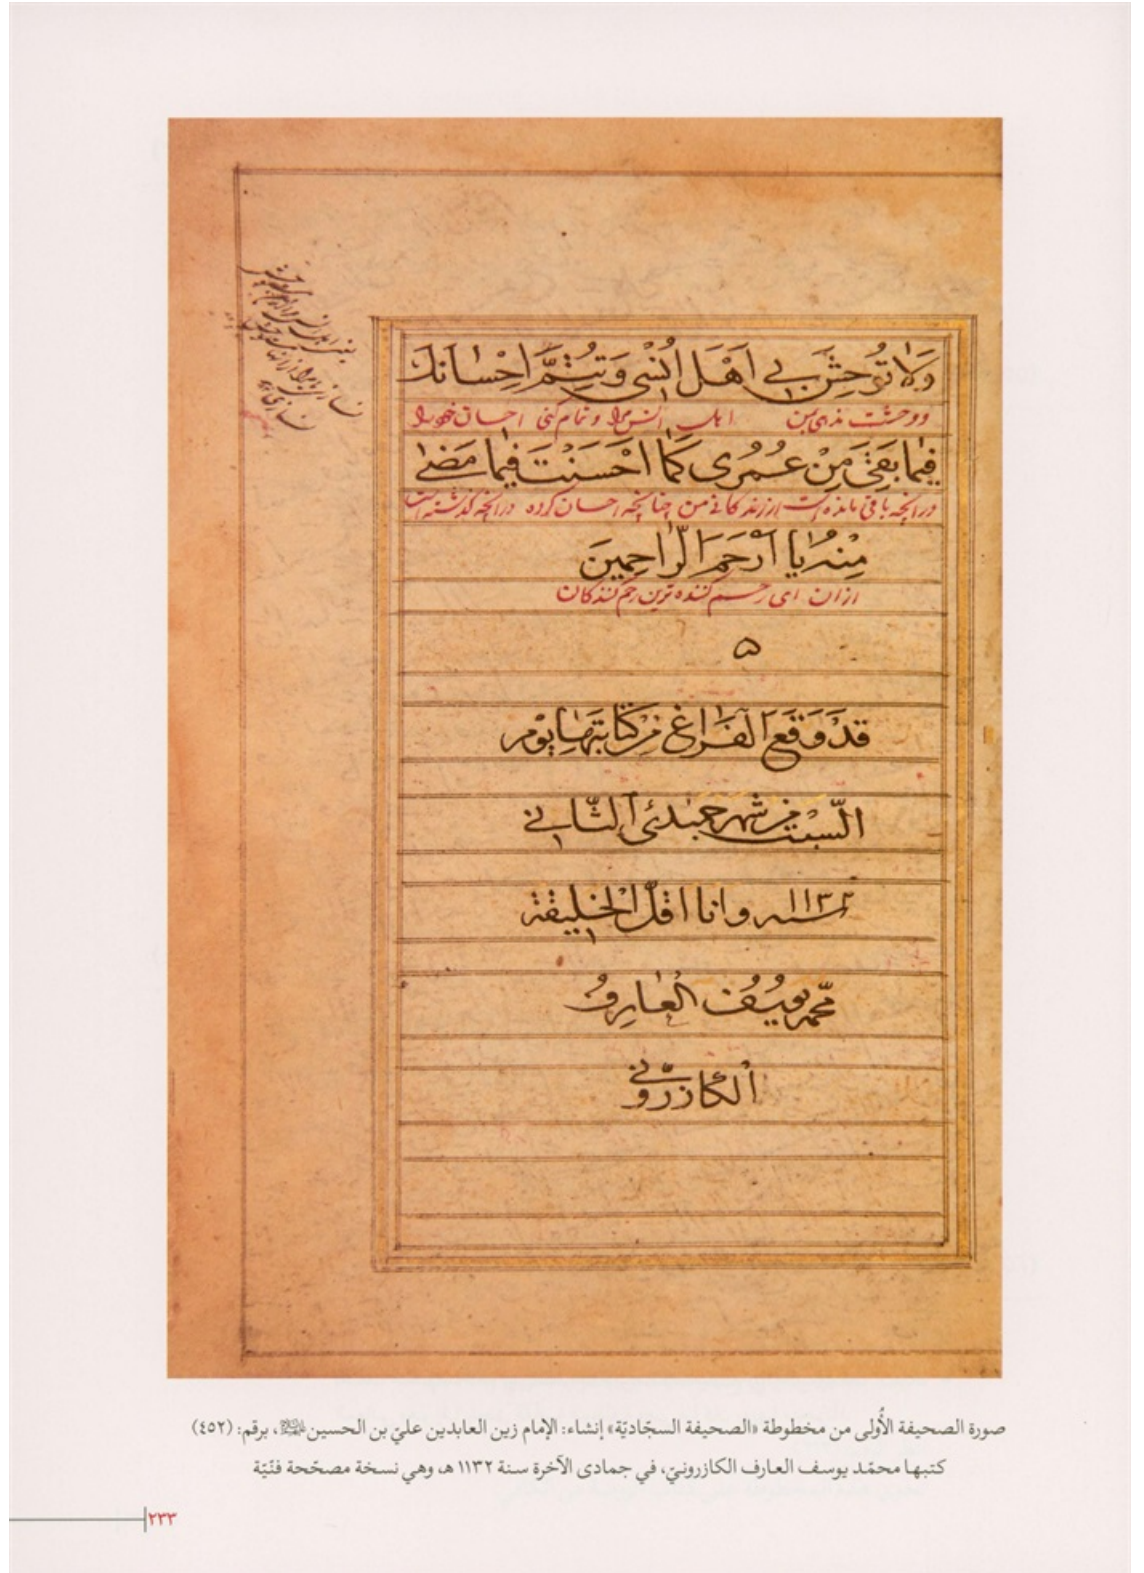 وَلَا تُوحِشْ بِي اَهْلَ اُنْسِي وَتُتِمَّ اِحْسٰانَكَ
و وحشت مده بمن اهل انس مرا و تمام کنی احسان خود را
فيمٰا بَقِيَ مِنْ عُمُرِي كَمٰا اَحْسَنْتَ فيمٰا مَضىٰ
درانچه باقی مانده است از زندکانی من چنانچه احسان کرده درانچه کذشته است
مِنْهُ يٰا اَرْحَمَ الرّٰاحِمِينَ
ازان ای رحم کننده ترین رحم کنندکان
۵
قَدْ وَقَعَ الْفَرٰاغُ مِنْ كِتٰابَتِهٰا يَوْم
السَّبْت من شهر جميدى الثّاني
سنه ۱۱۳۲ وانا اقلّ الْخليقة
محمّد يوسُف العٰارِف
الكازروني
صورة الصحيفة الأُولى من مخطوطة «الصحيفة السجّاديّة» إنشاء: الإمام زين العابدين عليّ بن الحسين عليه السلام، برقم: (٤٥٢)
كتبها محمّد يوسف العارف الكازرونيّ، في جمادى الآخرة سنة ١١٣٢ هـ، وهي نسخة مصحّحة فنّيّة
٢٣٣